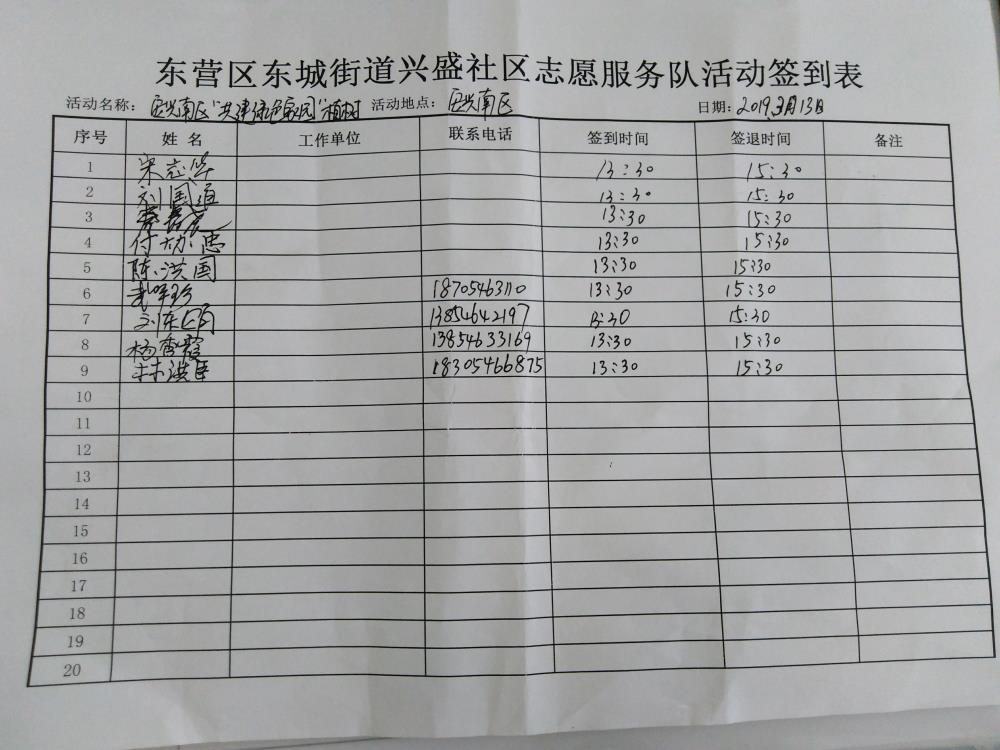 东营区东城街道兴盛社区志愿服务队活动签到表
活动名称: 南区"共建绿色家园"植树 活动地点: 南区 日期: 2019.3月13日
序号 姓名 工作单位 联系电话 签到时间 签退时间 备注
1 宋志华 13:30 15:30
2 刘国道 13:30 15:30
3 13:30 15:30
4 付忠 13:30 15:30
5 陈洪国 13:30 15:30
6 18705463110 13:30 15:30
7 刘东 13854642197 13:30 15:30
8 杨秀霞 13854633169 13:30 15:30
9 林洪臣 18305466875 13:30 15:30
10
11
12
13
14
15
16
17
18
19
20